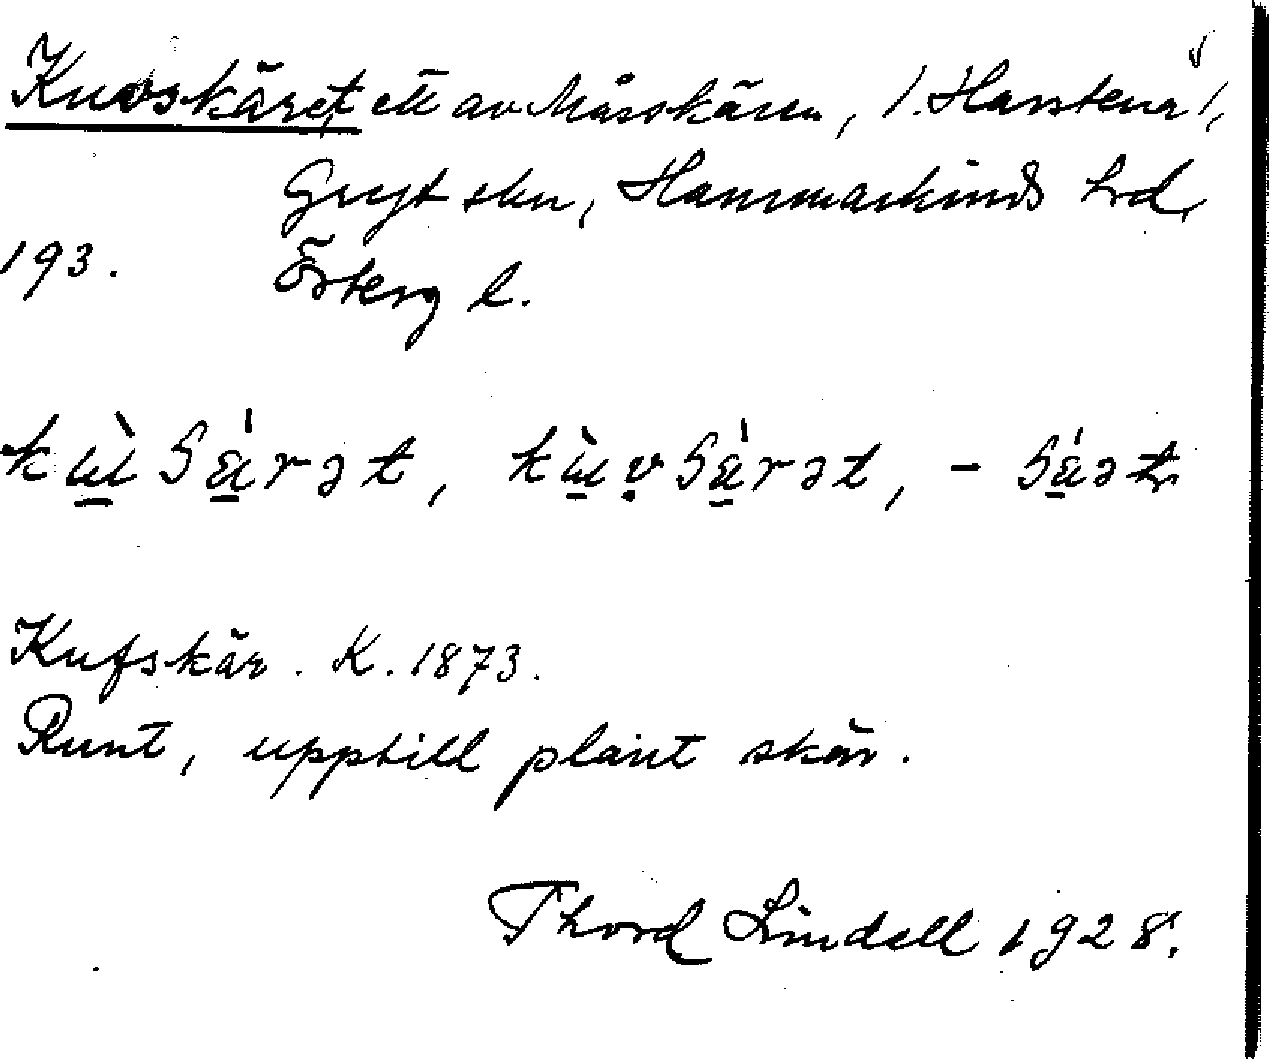 Kuvskäret ett av Måsskären, /. Harstena /,
Gryt skn, Hammarkinds hrd,
193. Österg l.
kɯ̀ ʃä́rət, kɯ̀vʃä́rət, - ʃä́ət
Kufskär. K. 1873.
Runt, upptill plant skär.
Thord Lindell 1928.